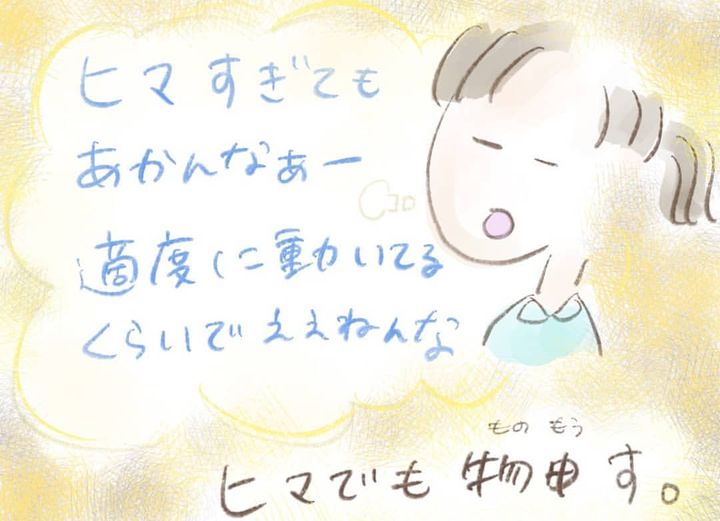 ヒマすぎても
あかんなぁー
適度に動いてる
くらいでええねんな
もの もう
ヒマでも物申す。